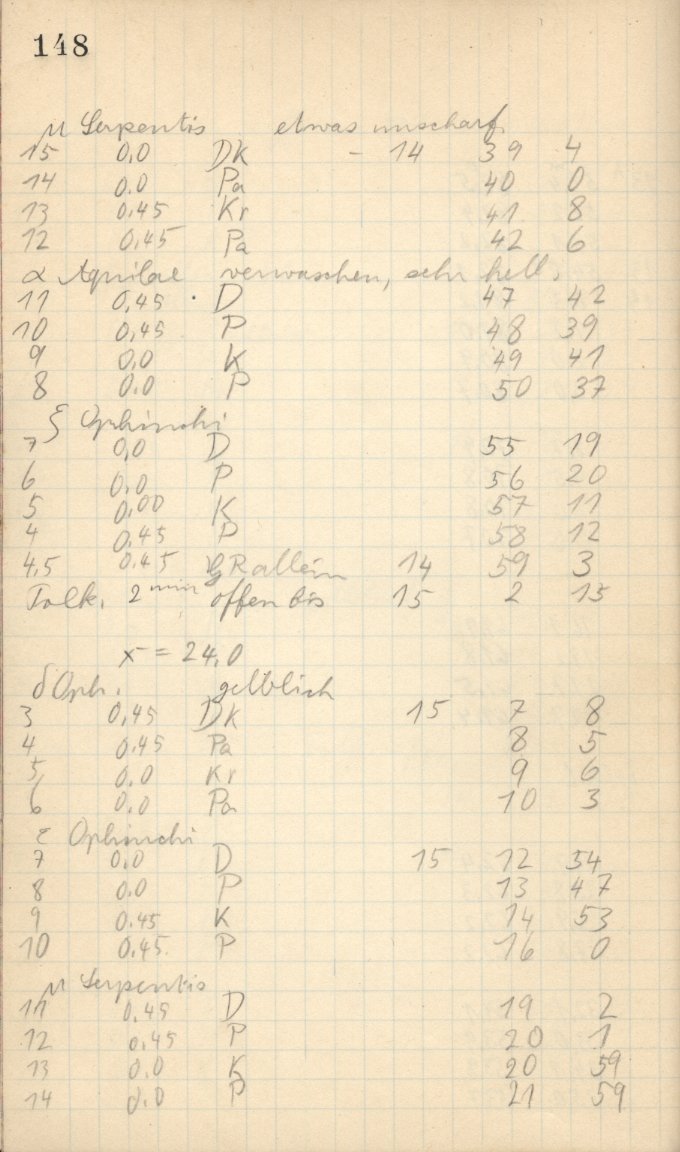 148
μ Serpentis etwas unscharf
15 0,0 DK - 14 39 4
14 0,0 Pa 40 0
13 0,45 Kr 41 8
12 0,45 Pa 42 6
α Aquilae verwaschen, sehr hell.
11 0,45 D 47 42
10 0,45 P 48 39
9 0,0 K 49 41
8 0,0 P 50 37
ξ Ophiuchi
7 0,0 D 55 19
6 0,0 P 56 20
5 0,00 K 57 11
4 0,45 P 58 12
4,5 0,45 R allein 14 59 3
Talk. 2 min offen bis 15 2 15
x = 24,0
δ Oph. gelblich
3 0,45 DK 15 7 8
4 0,45 Pa 8 5
5 0,0 Kr 9 6
6 0,0 Pa 10 3
ε Ophiuchi
7 0,0 D 15 12 54
8 0,0 P 13 47
9 0,45 K 14 53
10 0,45 P 16 0
μ Serpentis
11 0,45 D 19 2
12 0,45 P 20 1
13 0.0 K 20 59
14 0.0 P 21 59